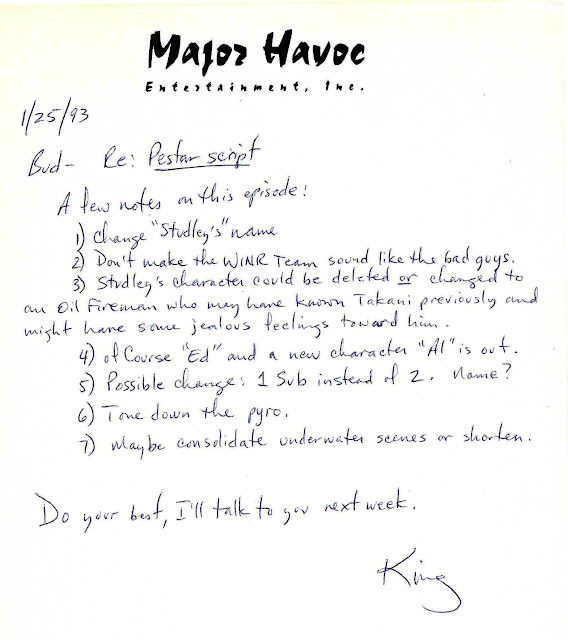 Major Havoc
Entertainment, Inc.
1/25/93
Bud- Re: Pestar script
A few notes on this episode:
1) Change "Studley's" name
2) Don't make the WINR Team sound like the bad guys.
3) Studley's character could be deleted or changed to
an Oil Fireman who may have known Takani previously and
might have some jealous feelings toward him.
4) of Course "Ed" and a new character "Al" is out.
5) Possible change: 1 Sub instead of 2. Name?
6) Tone down the pyro.
7) Maybe consolidate underwater scenes or shorten.
Do your best, I'll talk to you next week.
King